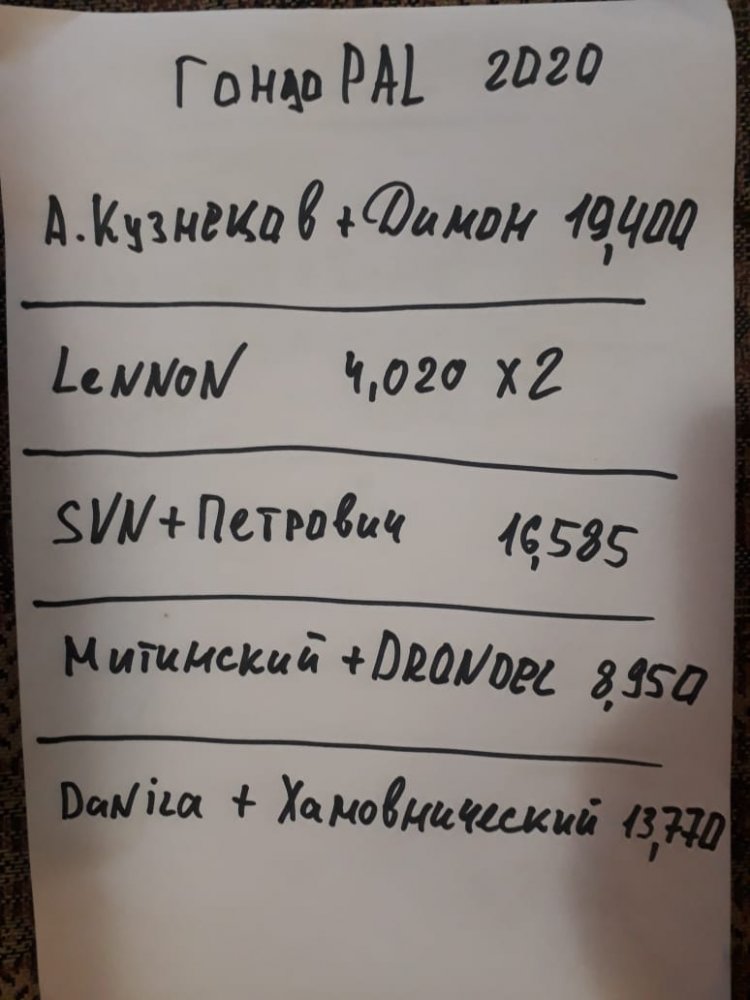 ГондоPAL 2020
А.Кузнецов + Димон 19,400
LeNNoN 4,020 x2
SVN + Петрович 16,585
Митинский + DRONDEL 8,950
DaNiла + Хамовнический 13,770